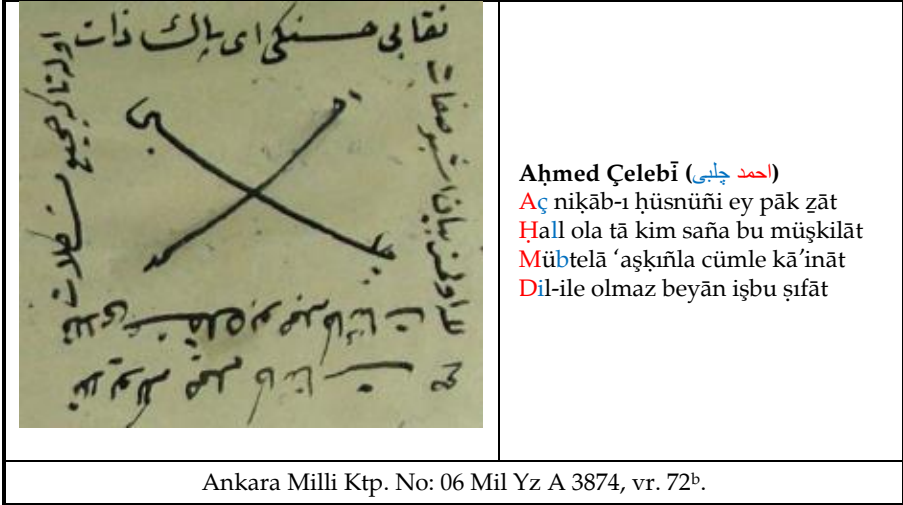 نقابی حسنکی ای پاك ذات
اوله تا كه جمیع مشكلات
اولمز بیان اشبو صفات
Aḥmed Çelebī (احمد چلبی)
Aç niḳāb-ı ḥüsnüñi ey pāk ẕāt
Ḥall ola tā kim saña bu müşkilāt
Mübtelā ‘aşḳıñla cümle kā’ināt
Dil-ile olmaz beyān işbu ṣıfāt
Ankara Milli Ktp. No: 06 Mil Yz A 3874, vr. 72ᵇ.